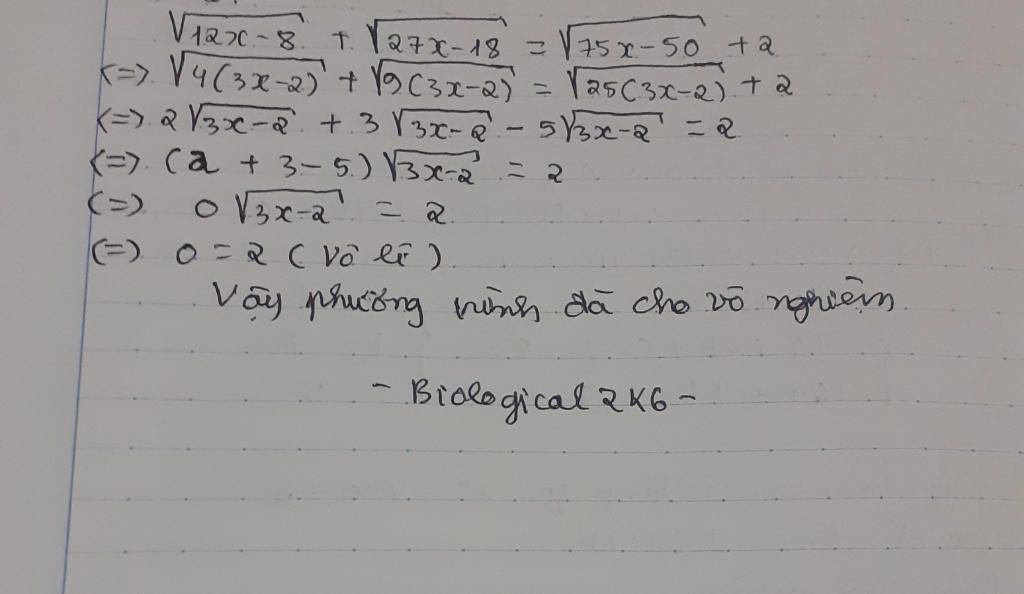 √12x-8 + √27x-18 = √75x-50 + 2
<=> √4(3x-2) + √9(3x-2) = √25(3x-2) + 2
<=> 2√3x-2 + 3√3x-2 - 5√3x-2 = 2
<=> (2 + 3-5)√3x-2 = 2
(=) 0√3x-2 = 2
(=) 0 = 2 (vô lí)
Vậy phương trình đã cho vô nghiệm
- Biological 2K6 -